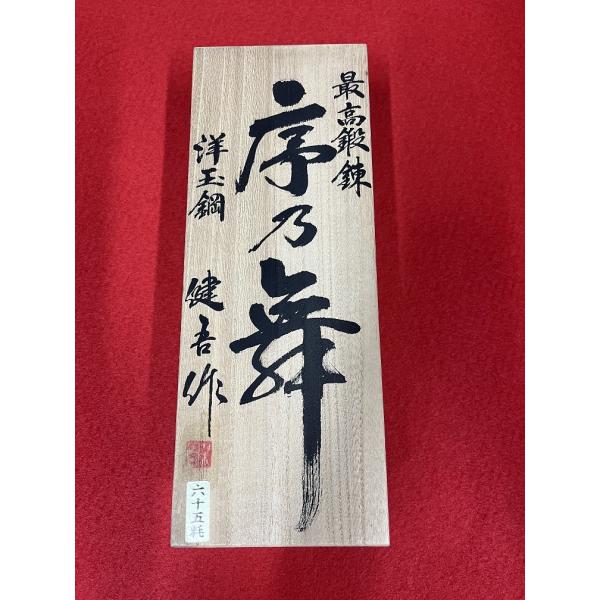 最高鍛錬
序乃舞
洋玉鋼
健吾作
六十五耗